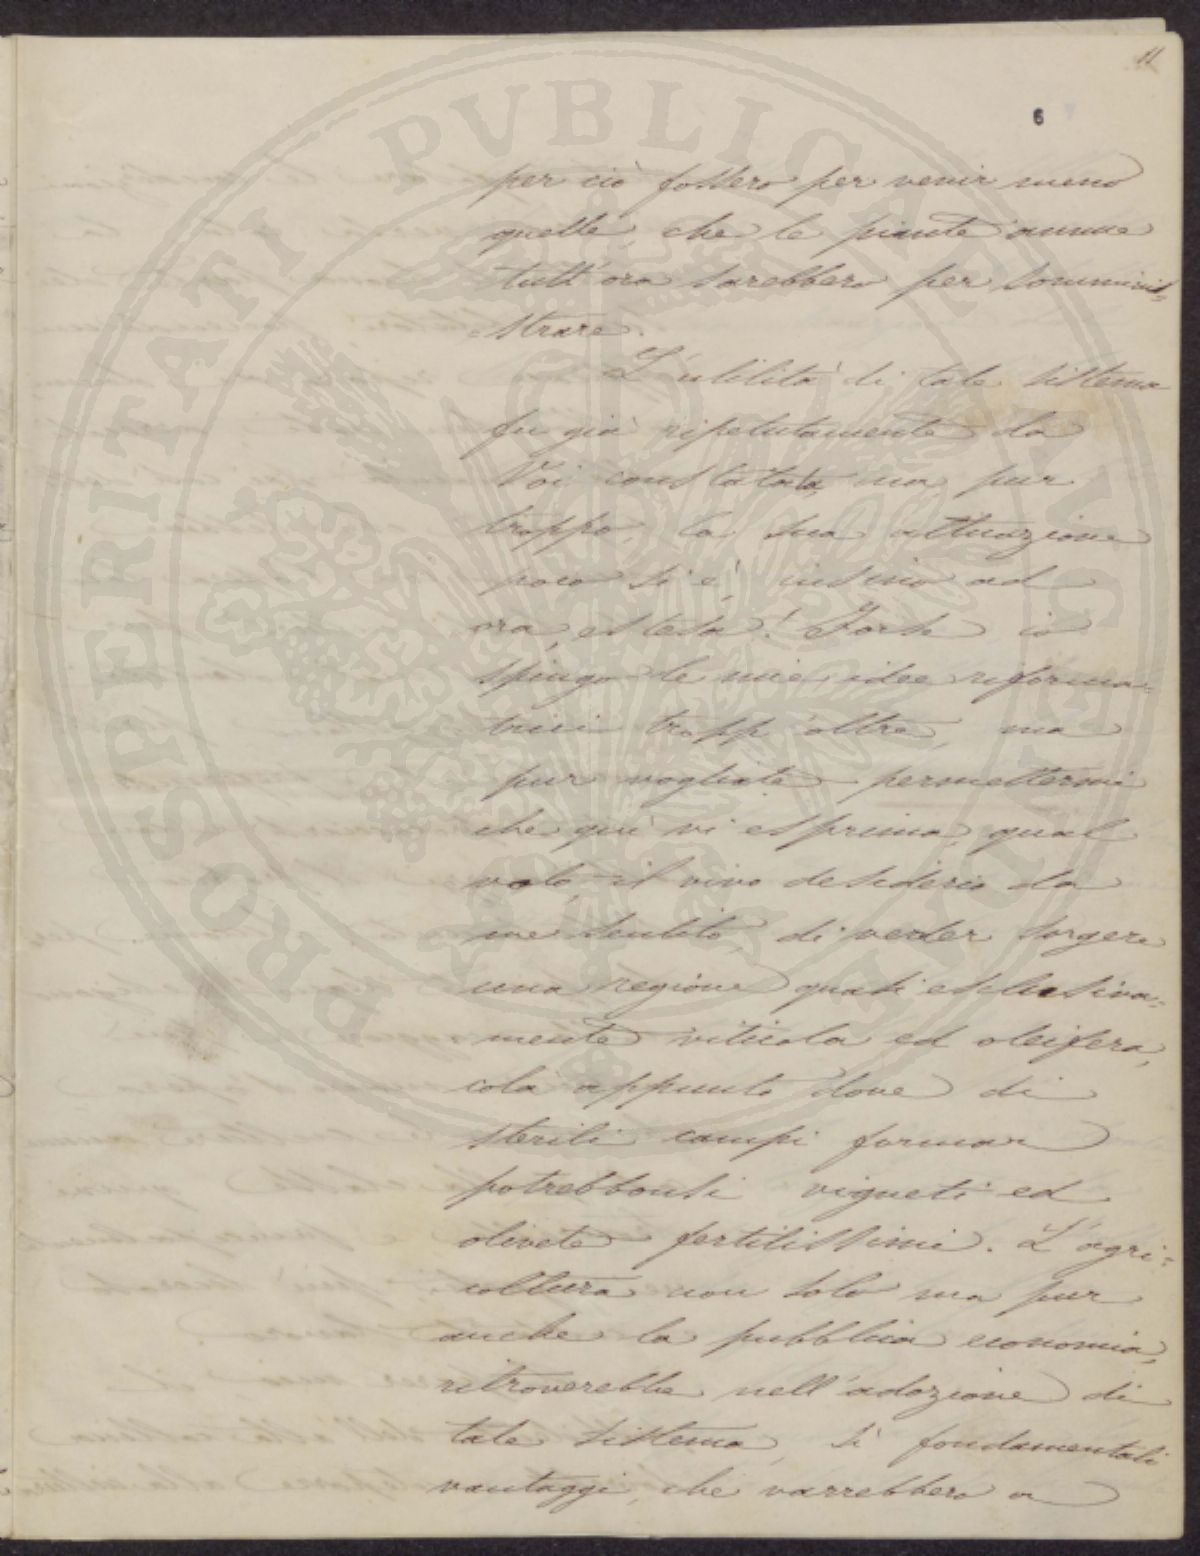 11
6
per ciò fossero per venir meno
quelle che le piante annue
tutt'ora sarebbero per sommini=
=strare.
L'utilità di tale sistema
fu già ripetutamente da
Voi constatata, ma pur
troppo, la sua attuazione
poco si è, insino ad
ora, estesa! Forse io
spingo le mie idee riforma=
trici tropp'oltre, ma
pur vogliate permettermi
che qui vi esprima, qual
voto, il vivo desiderio da
me sentito, di veder sorgere
una regione quasi esclusiva=
mente viticola ed oleifera,
colà appunto dove di
sterili campi formar
potrebbonsi vigneti ed
olivete fertilissimi. L'agri=
coltura non solo ma pur
anche la pubblica economia,
ritroverebbe nell'adozione di
tale sistema, sì fondamentali
vantaggi, che varrebbero a
PROSPERITATI PVBLICAE AVGENDAE